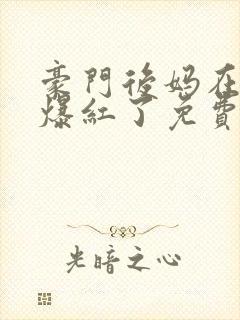 豪門後媽在
爆紅了免費
光暗之心